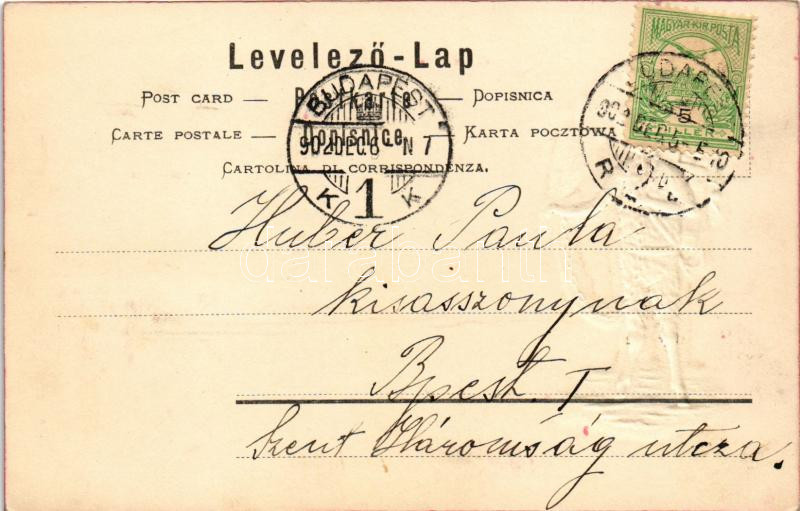 Levelező-Lap
Post card – Postkarte – Dopisnica
Carte postale – Dopisnice – Karta pocztowa
Cartolina di corrispondenza.
MAGYAR·KIR·POSTA
5
BUDAPEST
902 DEC. 6 N 7
K 1 K
BUDAPE
Huber Paula
kisasszonynak
Bpest. I
Szent Háromság utcza.
darabanth